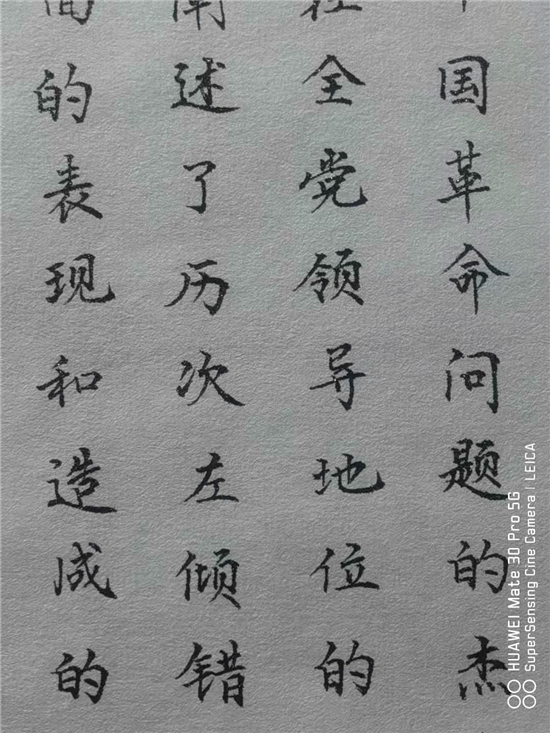 国革命问题的杰
全党领导地位的
述了历次左倾错
的表现和造成的
HUAWEI Mate 30 Pro 5G
SuperSensing Cine Camera | LEICA